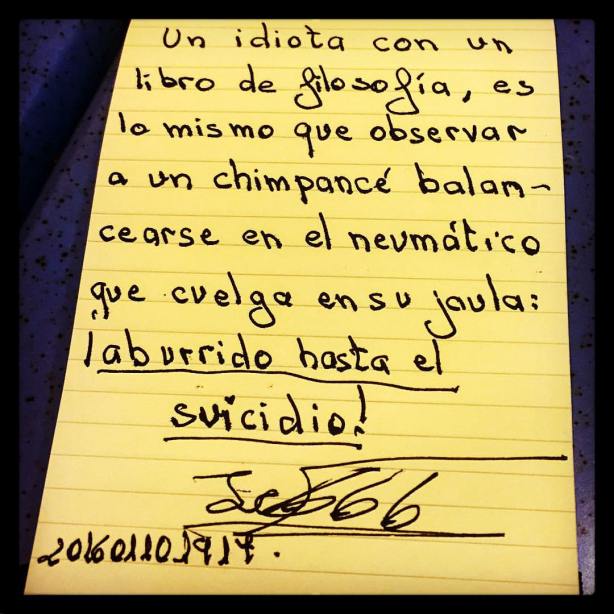 Un idiota con un
libro de filosofía, es
lo mismo que observar
a un chimpancé balan-
cearse en el neumático
que cuelga en su jaula:
¡aburrido hasta el
suicidio!
666
201601101917.